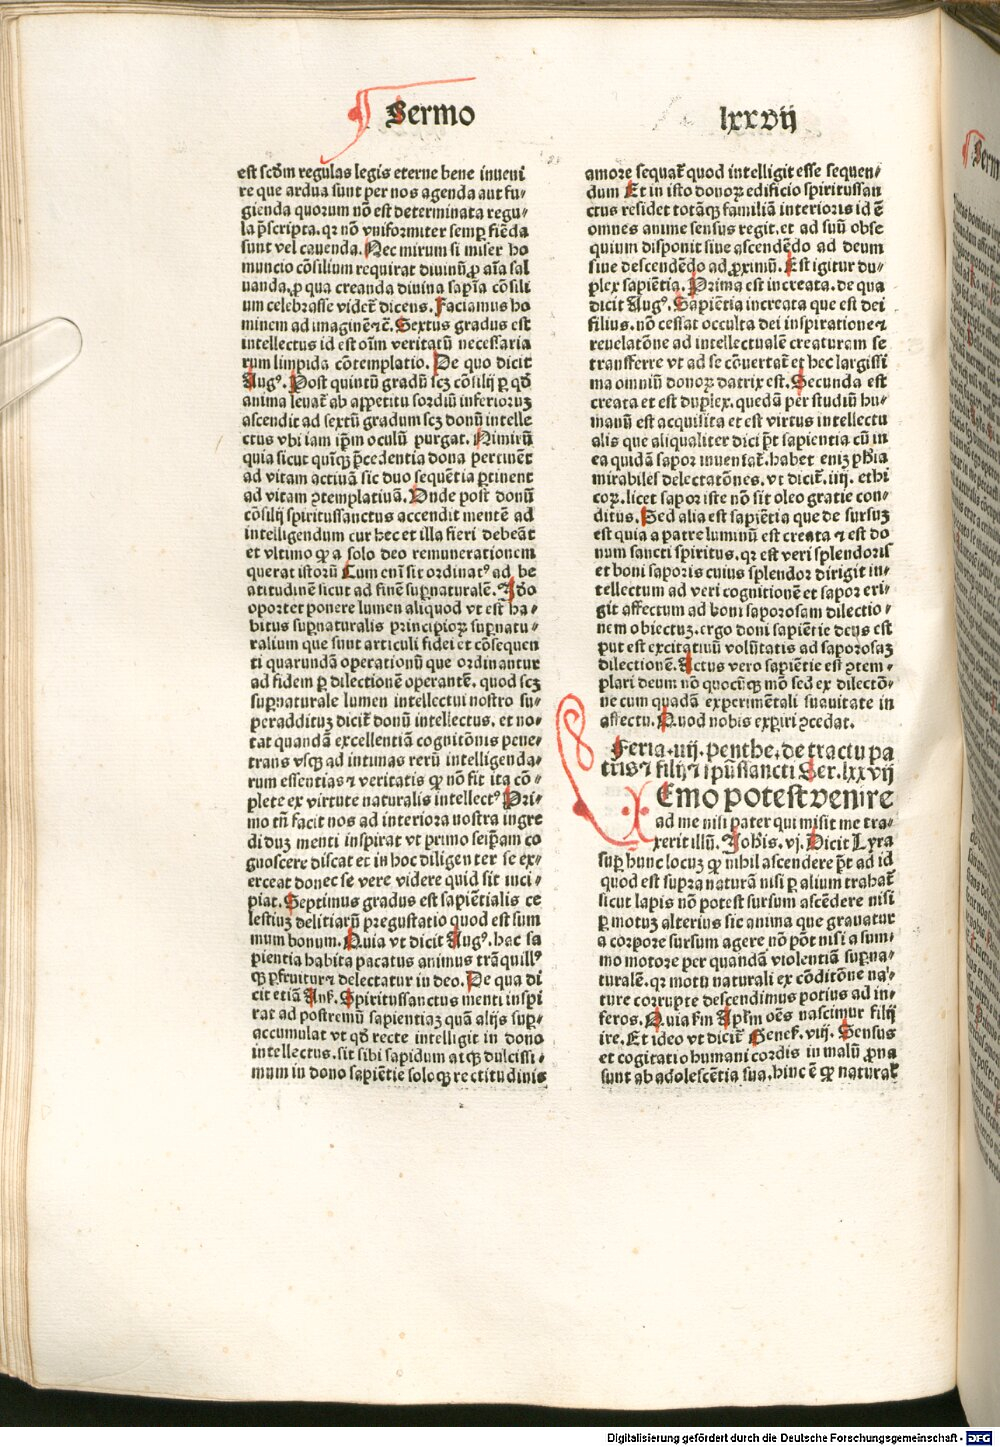 Sermo
lxxvij
est scd̄m regulas legis eterne bene inueni
re que ardua sunt per nos agenda aut fu⸗
gienda quorum nō est determinata regu⸗
la p̄scripta. qr nō vniformiter semꝑ fiēda
sunt vel cauenda. Nec mirum si miser ho
muncio cōsilium requirat diuinū ꝓ aīa sal
uanda, ꝓ qua creanda diuina sapīa cōsili
um celebrasse videt̄ dicens. Faciamus ho
minem ad imaginē ⁊c̄. Sextus gradus est
intellectus id est oīm veritatū necessaria
rum limpida cōtemplatio. De quo dicit
Augꝰ. Post quintū gradū scꝫ cōsilij ꝑ qd̄
anima leuat̄ ab appetitu sordiū inferiorꝝ
ascendit ad sextū gradum scꝫ donū intelle
ctus vbi iam ip̄m oculū purgat. Nimirū
quia sicut quīqꝫ p̄cedentia dona pertinēt
ad vitam actiuā sic duo sequētia ꝑtinent
ad vitam ꝯtemplatiuā. Unde post donū
cōsilij spiritussanctus accendit mentē ad
intelligendum cur hec et illa fieri debeāt
et vltimo ꝙ a solo deo remunerationem
querat istorū Cum enī sit ordinatꝰ ad be
atitudinē sicut ad finē suꝑnaturalē. Ido
oportet ponere lumen aliquod vt est ha⸗
bitus suꝑnaturalis principioꝝ suꝑnatu⸗
ralium que sunt articuli fidei et cōsequen
ti quarundā operationū que ordinantur
ad fidem ꝑ dilectionē operantē. quod scꝫ
suꝑnaturale lumen intellectui nostro su⸗
peraddituꝫ dicit̄ donū intellectus. et no⸗
tat quandā excellentiā cognitōnis pene⸗
trans vsqꝫ ad intimas rerū intelligenda⸗
rum essentias ⁊ veritatis ꝙ nō fit ita cō⸗
plete ex virtute naturalis intellectꝰ Pri⸗
mo tn̄ facit nos ad interiora nostra ingre
di duꝫ menti inspirat vt primo seip̄am co
gnoscere discat et in hoc diligenter se ex⸗
erceat donec se vere videre quid sit inci⸗
piat. Septimus gradus est sapiētialis ce
lestiuꝫ delitiarū pregustatio quod est sum
mum bonum. Quia vt dicit Augꝰ. hac sa
pientia habita pacatus animus trāquillꝰ
qꝫ ꝑfruitur ⁊ delectatur in deo. De qua di
cit etiā Ans̄. Spiritussanctus menti inspi
rat ad postremū sapientiaꝫ quā alijs suꝑ⸗
accumulat vt qd̄ recte intelligit in dono
intellectus. sit sibi sapidum atqꝫ dulcissi⸗
mum in dono sapiētie soloqꝫ rectitudinis
amore sequat̄ quod intelligit esse sequen⸗
dum Et in isto donoꝝ edificio spiritussan
ctus residet totāqꝫ familiā interioris id ē
omnes anime sensus regit. et ad suū obse
quium disponit siue ascendēdo ad deum
siue descendēdo ad ꝓximū. Est igitur du⸗
plex sapiētia. Prima est increata. de qua
dicit Augꝰ. Sapiētia increata que est dei
filius. nō cessat occulta dei inspiratione ⁊
reuelatōne ad intellectualē creaturam se
transferre vt ad se cōuertat̄ et hec largissi
ma omniū donoꝝ datrix est. Secunda est
creata et est duplex. quedā per studiū hu⸗
manū est acquisita et est virtus intellectu
alis que aliqualiter dici pt̄ sapientia cū in
ea quidā sapor inueniat̄. habet eniꝫ phīa
mirabiles delectatōnes. vt dicit̄. iiij. ethi
coꝝ. licet sapor iste nō sit oleo gratie con⸗
ditus. Sed alia est sapiētia que de sursuꝫ
est quia a patre luminū est creata ⁊ est do
num sancti spiritus. qr est veri splendoris
et boni saporis cuius splendor dirigit in⸗
tellectum ad veri cognitionē et sapor eri⸗
git affectum ad boni saporosam dilectio⸗
nem obiectuꝫ. ergo doni sapiētie deus est
put est excitatiuū volūtatis ad saporosaꝫ
dilectionē. Actus vero sapiētie est ꝯtem⸗
plari deum nō quocūqꝫ mō sed ex dilectō⸗
ne cum quadā experimentali suauitate in
affectu. Quod nobis exꝑiri ꝯcedat.
Feria. iiij. penthe. de tractu pa
tris ⁊ filij ⁊ ip̄us sancti Ser. lxxvij
Emo potest venire
ad me nisi pater qui misit me tra⸗
xerit illū. Joh̄is. vj. Dicit Lyra
suꝑ hunc locuꝫ ꝙ nihil ascendere pt̄ ad id
quod est supra naturā nisi ꝑ alium trahat̄
sicut lapis nō potest sursum ascēdere nisi
ꝑ motuꝫ alterius sic anima que grauatur
a corpore sursum agere nō pōt nisi a sum⸗
mo motore per quandā violentiā suꝑna⸗
turalē. qr motu naturali ex cōditōne na⸗
ture corrupte descendimus potius ad in⸗
feros. Quia s̄m Apl̄m oēs nascimur filij
ire. Et ideo vt dicit̄ Genes̄. viij. Sensus
et cogitatio humani cordis in malū ꝓna
sunt ab adolescētia sua. hinc ē ꝙ natural̄
Digitalisierung gefördert durch die Deutsche Forschungsgemeinschaft - DFG